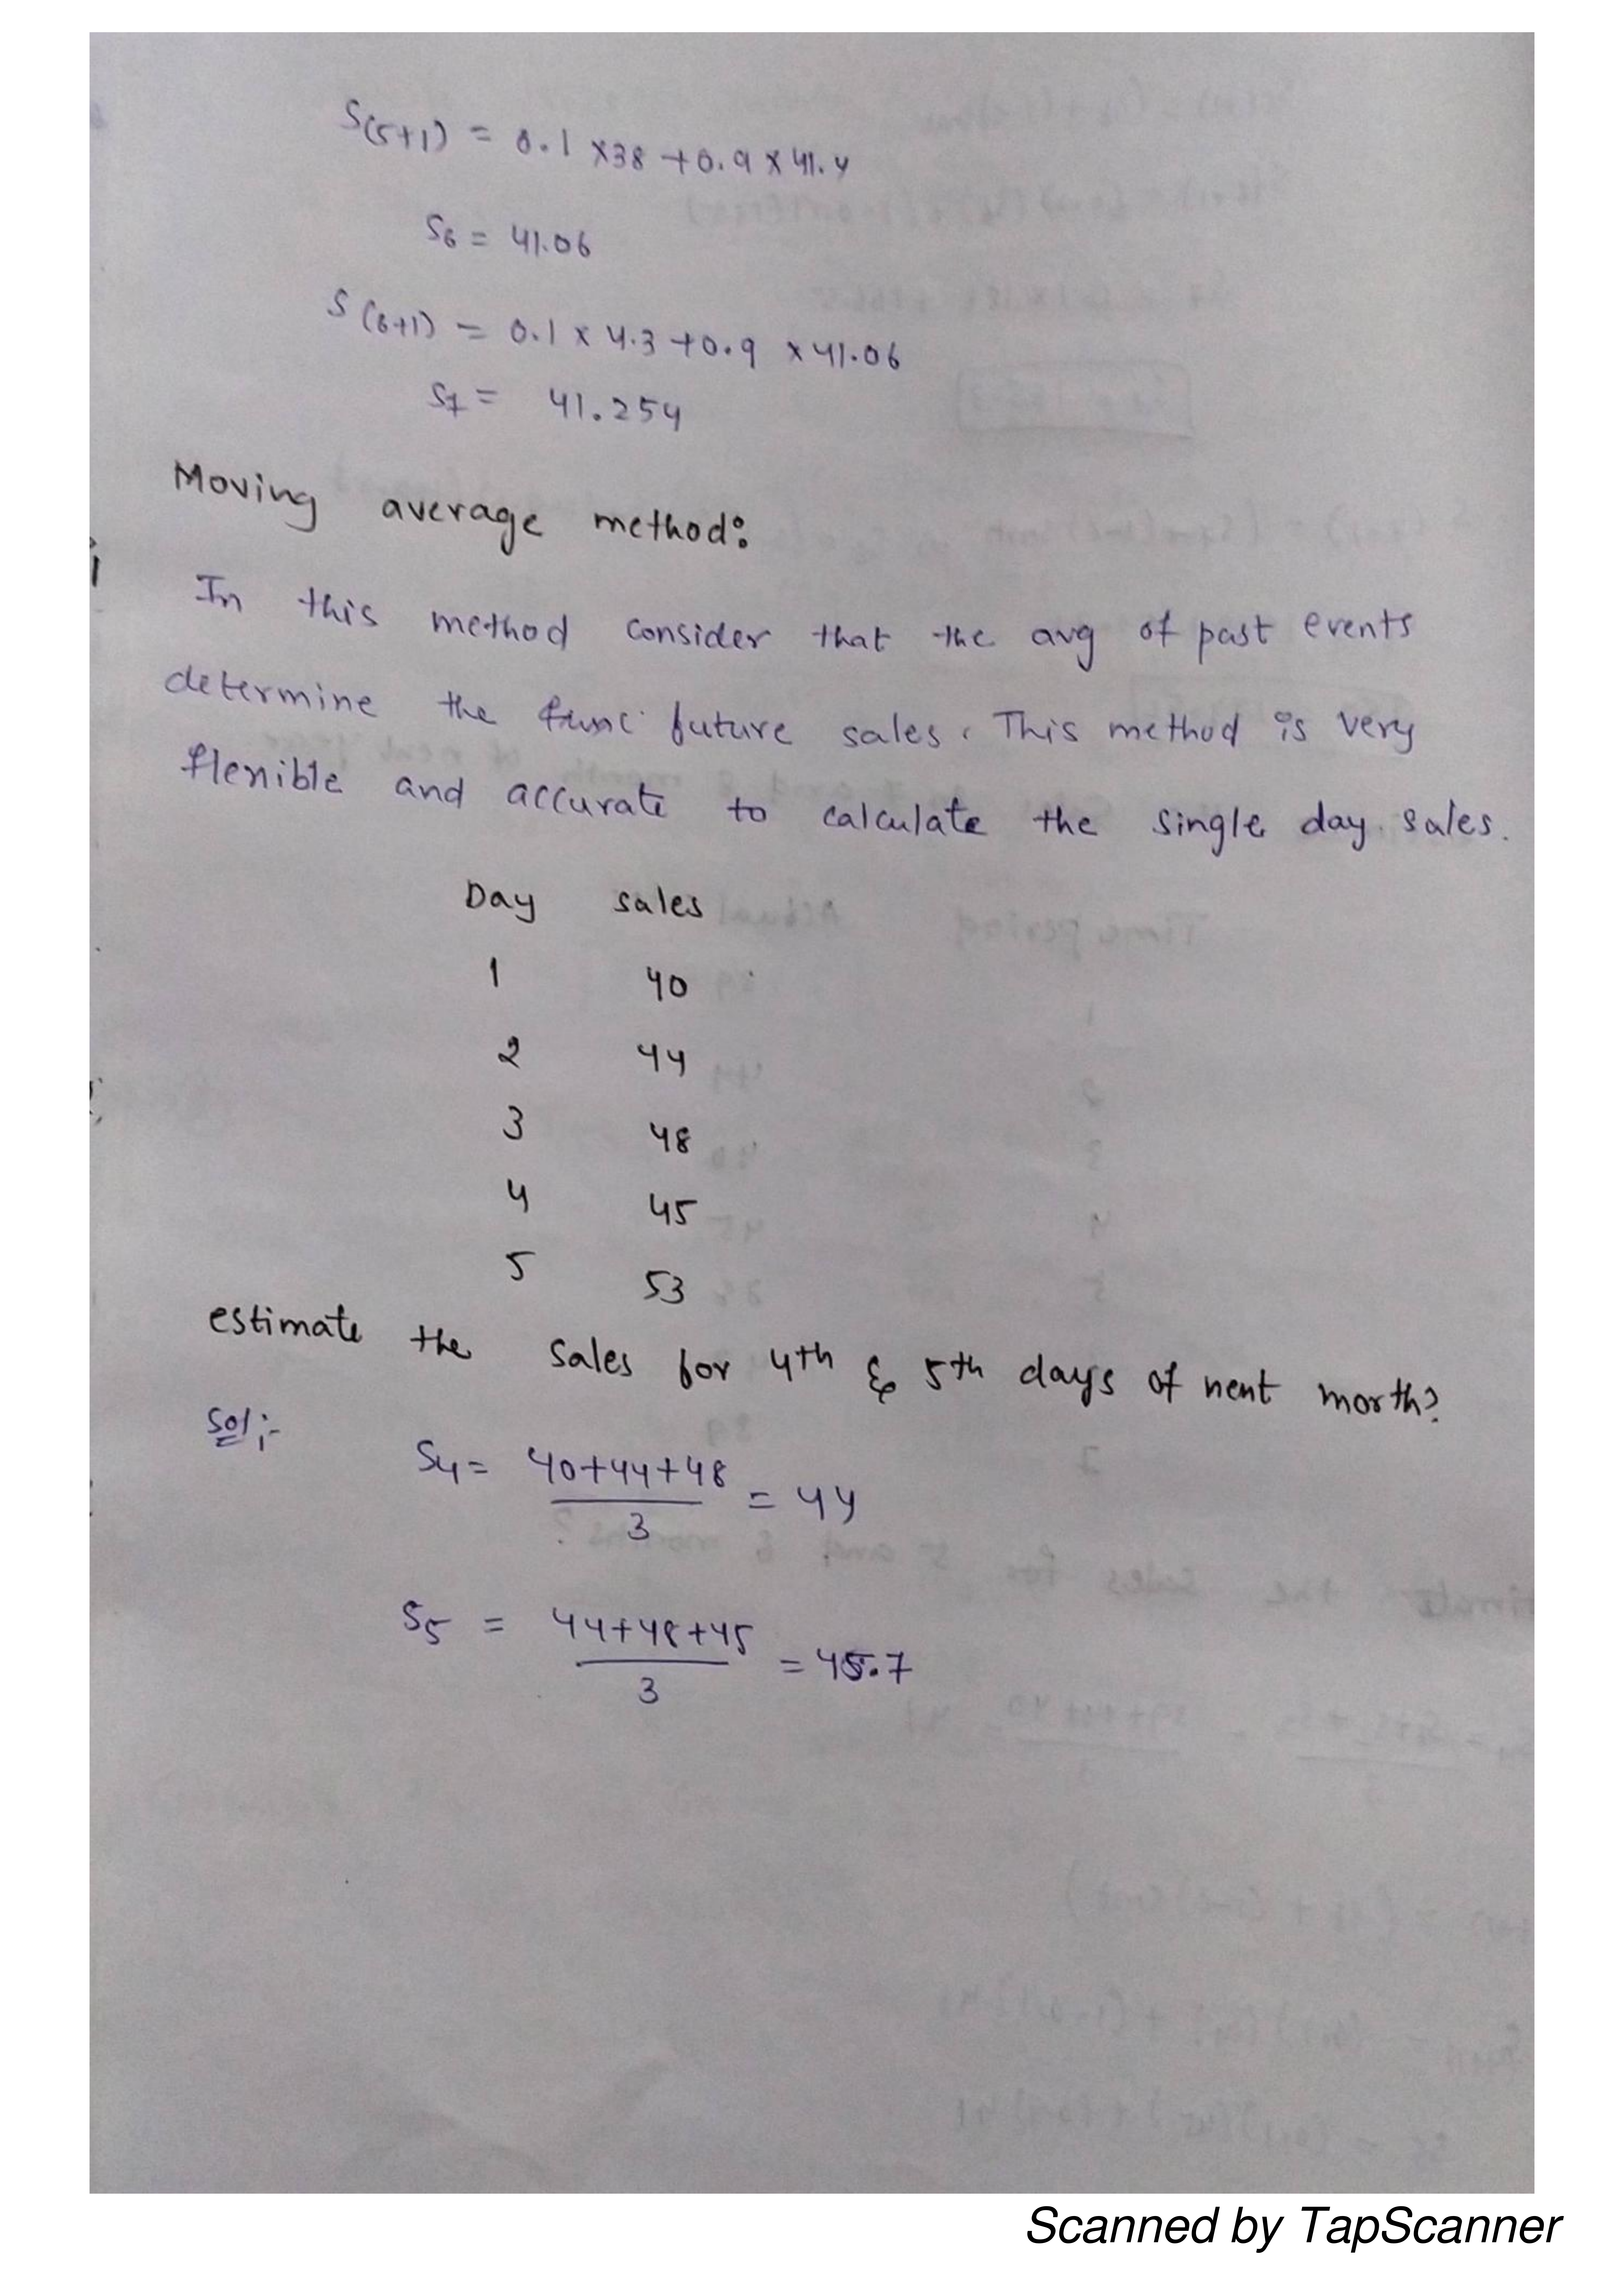 S(5+1) = 0.1 x38 +0.9 x 41.4
S6 = 41.06
S(6+1) = 0.1 x 4.3 +0.9 x41.06
S7 = 41.254
Moving average method:
In this method consider that the avg of past events
determine the future sales. This method is very
flexible and accurate to calculate the single day sales.
Day sales
1 40
2 44
3 48
4 45
5 53
estimate the sales for 4th & 5th days of next month?
Sol:-
S4 = 40+44+48 / 3 = 44
S5 = 44+48+45 / 3 = 45.7
Scanned by TapScanner